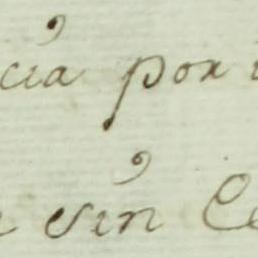 cia por
sin